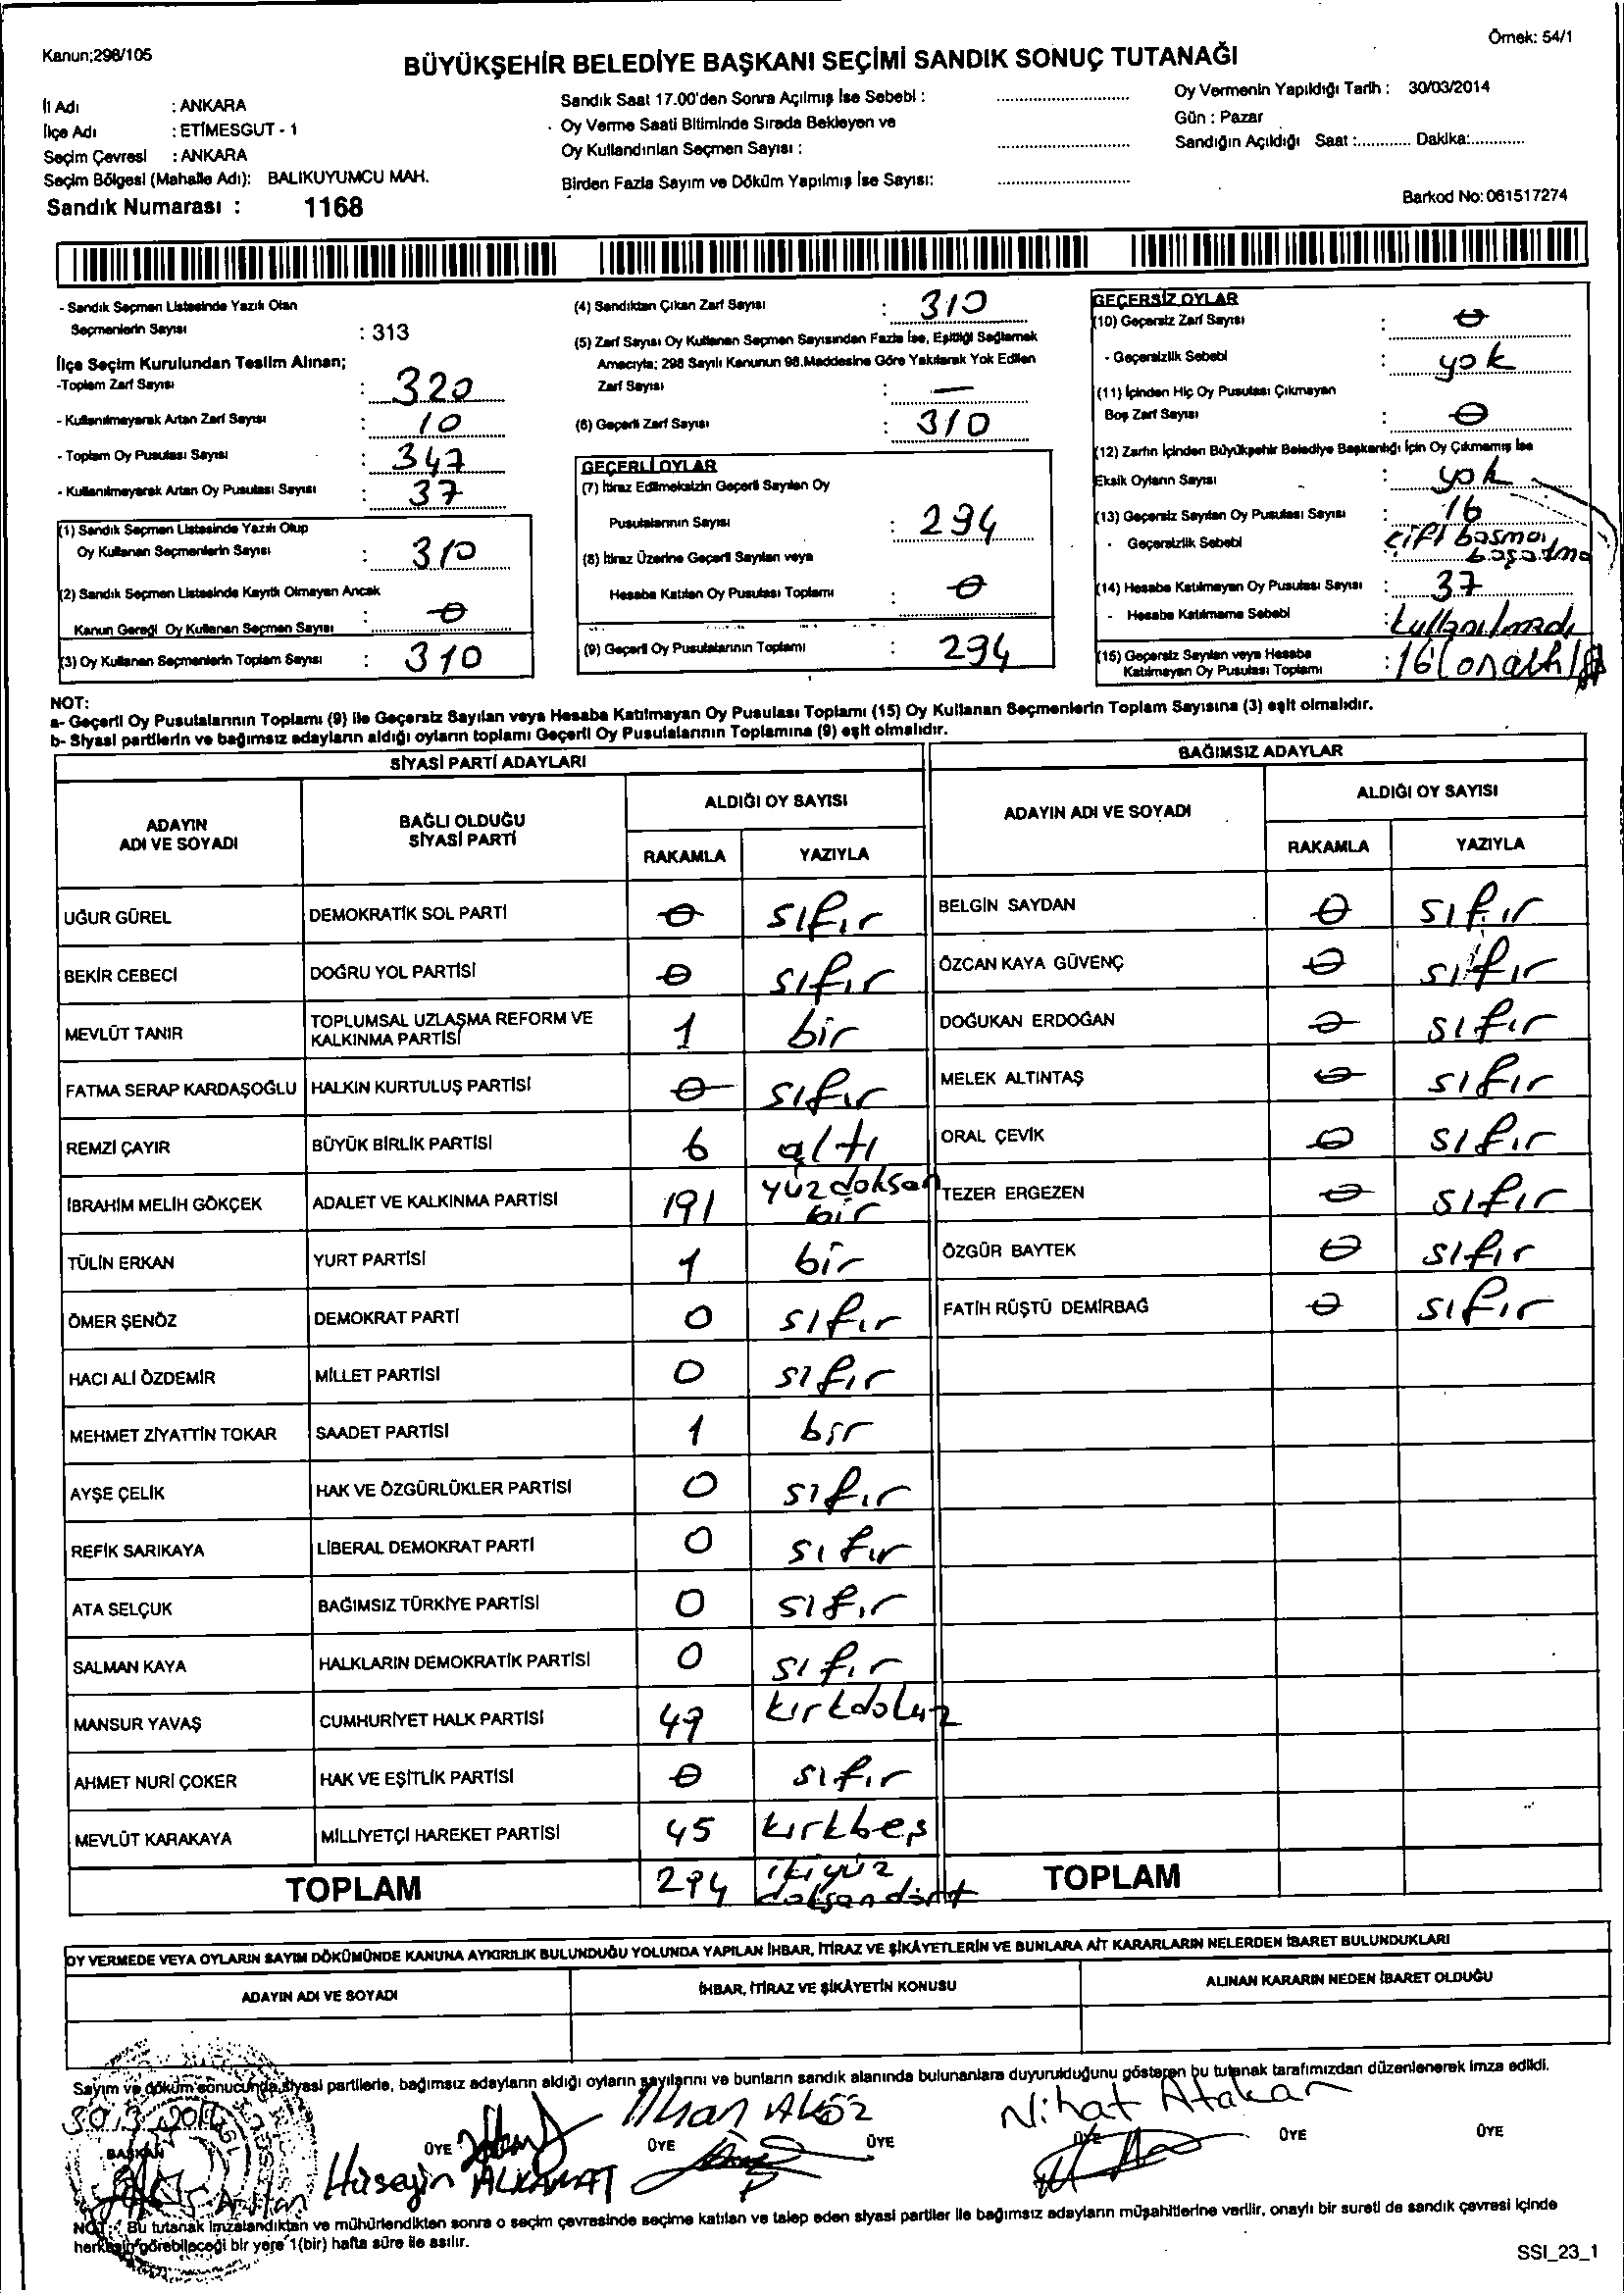 Kanun;298/105
Örnek: 54/1
BÜYÜKŞEHİR BELEDİYE BAŞKANI SEÇİMİ SANDIK SONUÇ TUTANAĞI
İl Adı : ANKARA
İlçe Adı : ETİMESGUT - 1
Seçim Çevresi : ANKARA
Seçim Bölgesi (Mahalle Adı): BALIKUYUMCU MAH.
Sandık Numarası : 1168
Sandık Saat 17.00'den Sonra Açılmış İse Sebebi :
Oy Verme Saati Bitiminde Sırada Bekleyen ve
Oy Kullandırılan Seçmen Sayısı :
Birden Fazla Sayım ve Döküm Yapılmış İse Sayısı:
Oy Vermenin Yapıldığı Tarih : 30/03/2014
Gün : Pazar
Sandığın Açıldığı Saat :............ Dakika:............
Barkod No: 061517274
- Sandık Seçmen Listesinde Yazılı Olan
Seçmenlerin Sayısı : 313
İlçe Seçim Kurulundan Teslim Alınan;
-Toplam Zarf Sayısı : 320
- Kullanılmayarak Artan Zarf Sayısı : 10
- Toplam Oy Pusulası Sayısı : 347
- Kullanılmayarak Artan Oy Pusulası Sayısı : 37
(1) Sandık Seçmen Listesinde Yazılı Olup
Oy Kullanan Seçmenlerin Sayısı : 310
(2) Sandık Seçmen Listesinde Kayıtlı Olmayan Ancak
Kanun Gereği Oy Kullanan Seçmen Sayısı : 0
(3) Oy Kullanan Seçmenlerin Toplam Sayısı : 310
(4) Sandıktan Çıkan Zarf Sayısı : 310
(5) Zarf Sayısı Oy Kullanan Seçmen Sayısından Fazla İse, Eşitliği Sağlamak
Amacıyla; 298 Sayılı Kanunun 98.Maddesine Göre Yakılarak Yok Edilen
Zarf Sayısı : —
(6) Geçerli Zarf Sayısı : 310
GEÇERLİ OYLAR
(7) İtiraz Edilmeksizin Geçerli Sayılan Oy
Pusulalarının Sayısı : 294
(8) İtiraz Üzerine Geçerli Sayılan veya
Hesaba Katılan Oy Pusulası Toplamı : 0
(9) Geçerli Oy Pusulalarının Toplamı : 294
GEÇERSİZ OYLAR
(10) Geçersiz Zarf Sayısı : 0
- Geçersizlik Sebebi : yok
(11) İçinden Hiç Oy Pusulası Çıkmayan
Boş Zarf Sayısı : 0
(12) Zarfın İçinden Büyükşehir Belediye Başkanlığı İçin Oy Çıkmamış İse
Eksik Oyların Sayısı : yok
(13) Geçersiz Sayılan Oy Pusulası Sayısı : 16
- Geçersizlik Sebebi çift basma,
(14) Hesaba Katılmayan Oy Pusulası Sayısı : 37
- Hesaba Katılmama Sebebi : kullanılmadı
(15) Geçersiz Sayılan veya Hesaba
Katılmayan Oy Pusulası Toplamı : 16 (onaltı)
NOT:
a- Geçerli Oy Pusulalarının Toplamı (9) ile Geçersiz Sayılan veya Hesaba Katılmayan Oy Pusulası Toplamı (15) Oy Kullanan Seçmenlerin Toplam Sayısına (3) eşit olmalıdır.
b- Siyasi partilerin ve bağımsız adayların aldığı oyların toplamı Geçerli Oy Pusulalarının Toplamına (9) eşit olmalıdır.
SİYASİ PARTİ ADAYLARI
ADAYIN ADI VE SOYADI
BAĞLI OLDUĞU SİYASİ PARTİ
ALDIĞI OY SAYISI
RAKAMLA YAZIYLA
UĞUR GÜREL DEMOKRATİK SOL PARTİ 0 sıfır
BEKİR CEBECİ DOĞRU YOL PARTİSİ 0 sıfır
MEVLÜT TANIR TOPLUMSAL UZLAŞMA REFORM VE KALKINMA PARTİSİ 1 bir
FATMA SERAP KARDAŞOĞLU HALKIN KURTULUŞ PARTİSİ 0 sıfır
REMZİ ÇAYIR BÜYÜK BİRLİK PARTİSİ 6 altı
İBRAHİM MELİH GÖKÇEK ADALET VE KALKINMA PARTİSİ 191 yüzdoksan bir
TÜLİN ERKAN YURT PARTİSİ 1 bir
ÖMER ŞENÖZ DEMOKRAT PARTİ 0 sıfır
HACI ALİ ÖZDEMİR MİLLET PARTİSİ 0 sıfır
MEHMET ZİYATTİN TOKAR SAADET PARTİSİ 1 bir
AYŞE ÇELİK HAK VE ÖZGÜRLÜKLER PARTİSİ 0 sıfır
REFİK SARIKAYA LİBERAL DEMOKRAT PARTİ 0 sıfır
ATA SELÇUK BAĞIMSIZ TÜRKİYE PARTİSİ 0 sıfır
SALMAN KAYA HALKLARIN DEMOKRATİK PARTİSİ 0 sıfır
MANSUR YAVAŞ CUMHURİYET HALK PARTİSİ 49 kırkdokuz
AHMET NURİ ÇOKER HAK VE EŞİTLİK PARTİSİ 0 sıfır
MEVLÜT KARAKAYA MİLLİYETÇİ HAREKET PARTİSİ 45 kırkbeş
TOPLAM 294 ikiyüz doksandört
BAĞIMSIZ ADAYLAR
ADAYIN ADI VE SOYADI
ALDIĞI OY SAYISI
RAKAMLA YAZIYLA
BELGİN SAYDAN 0 sıfır
ÖZCAN KAYA GÜVENÇ 0 sıfır
DOĞUKAN ERDOĞAN 0 sıfır
MELEK ALTINTAŞ 0 sıfır
ORAL ÇEVİK 0 sıfır
TEZER ERGEZEN 0 sıfır
ÖZGÜR BAYTEK 0 sıfır
FATİH RÜŞTÜ DEMİRBAĞ 0 sıfır
TOPLAM
OY VERMEDE VEYA OYLARIN SAYIM DÖKÜMÜNDE KANUNA AYKIRILIK BULUNDUĞU YOLUNDA YAPILAN İHBAR, İTİRAZ VE ŞİKÂYETLERİN VE BUNLARA AİT KARARLARIN NELERDEN İBARET BULUNDUKLARI
ADAYIN ADI VE SOYADI
İHBAR, İTİRAZ VE ŞİKÂYETİN KONUSU
ALINAN KARARIN NEDEN İBARET OLDUĞU
Sayım ve döküm sonucunda,siyasi partilerle, bağımsız adayların aldığı oyların sayılarını ve bunların sandık alanında bulunanlara duyurulduğunu gösteren bu tutanak tarafımızdan düzenlenerek imza edildi.
30.3.2014
İlhan AKÖZ
Nihat Atakan
BAŞKAN ÜYE ÜYE ÜYE ÜYE ÜYE ÜYE
Hüseyin ALKAMAT
NOT : Bu tutanak imzalandıktan ve mühürlendikten sonra o seçim çevresinde seçime katılan ve talep eden siyasi partiler ile bağımsız adayların müşahitlerine verilir, onaylı bir sureti de sandık çevresi içinde
herkesin görebileceği bir yere 1(bir) hafta süre ile asılır.
SSI_23_1